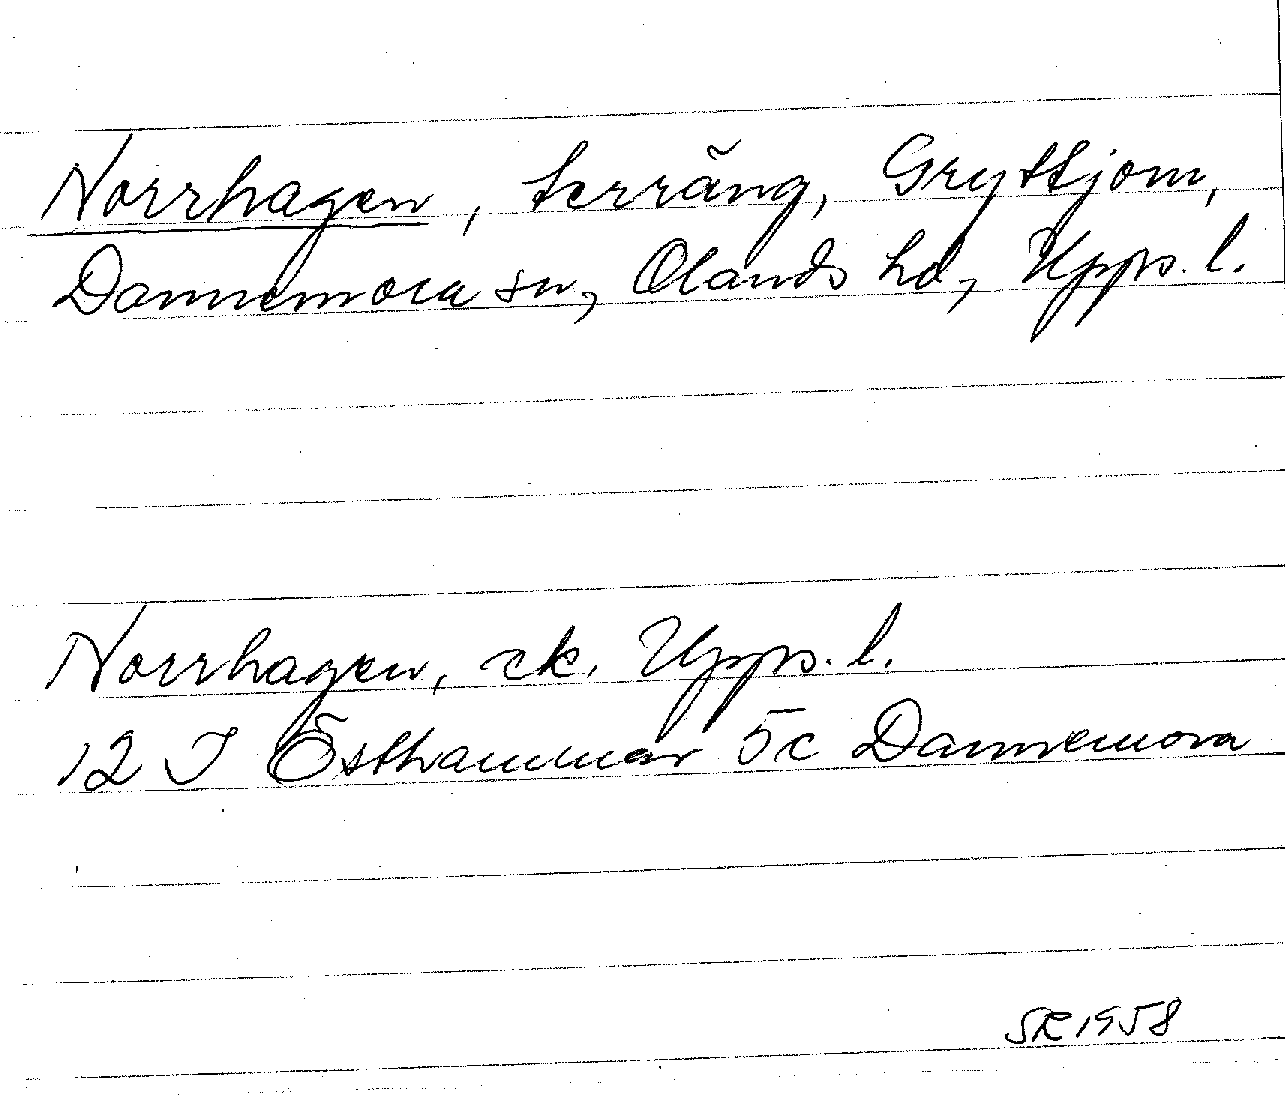 Norrhagen, terräng, Gryttjom,
Dannemora sn, Olands hd, Upps. l.
Norrhagen, ek. Upps. l.
12 I Östhammar 5c Dannemora
SR 1958